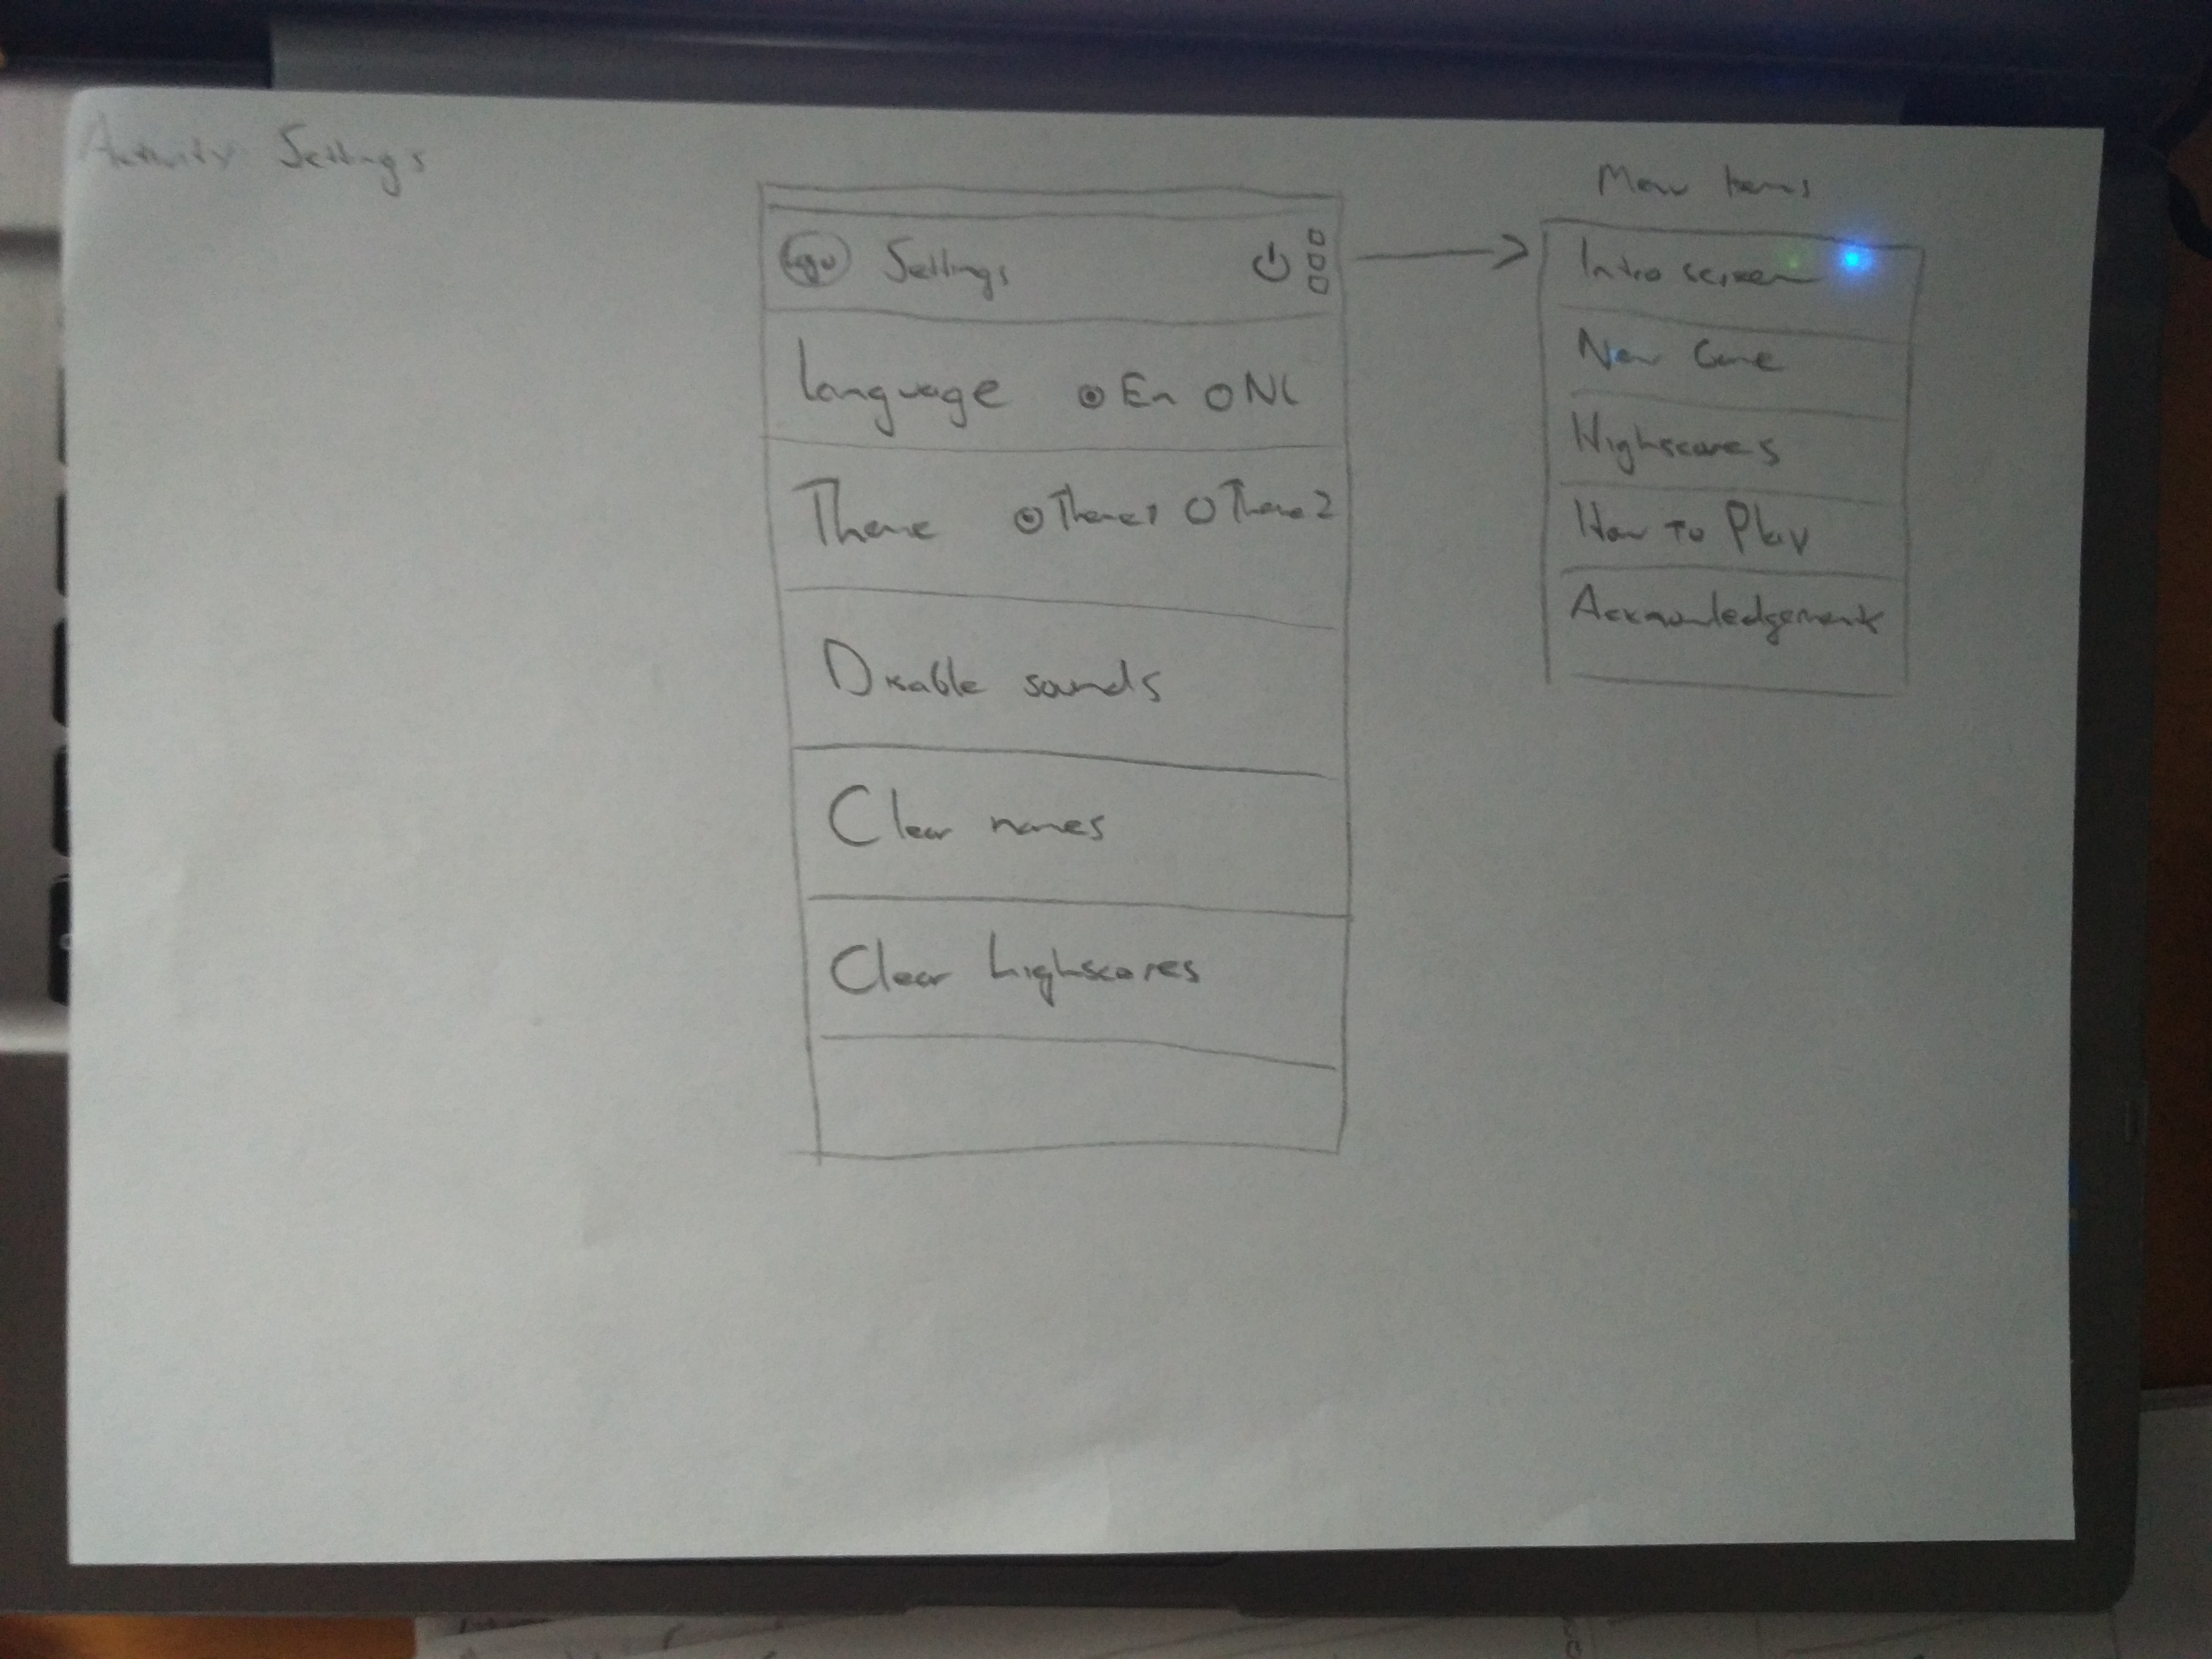 Activity Settings
Menu Items
Logo Settings
Language En NL
Theme Theme1 Theme2
Disable sounds
Clear names
Clear highscores
Intro screen
New Game
Highscores
How To Play
Acknowledgement